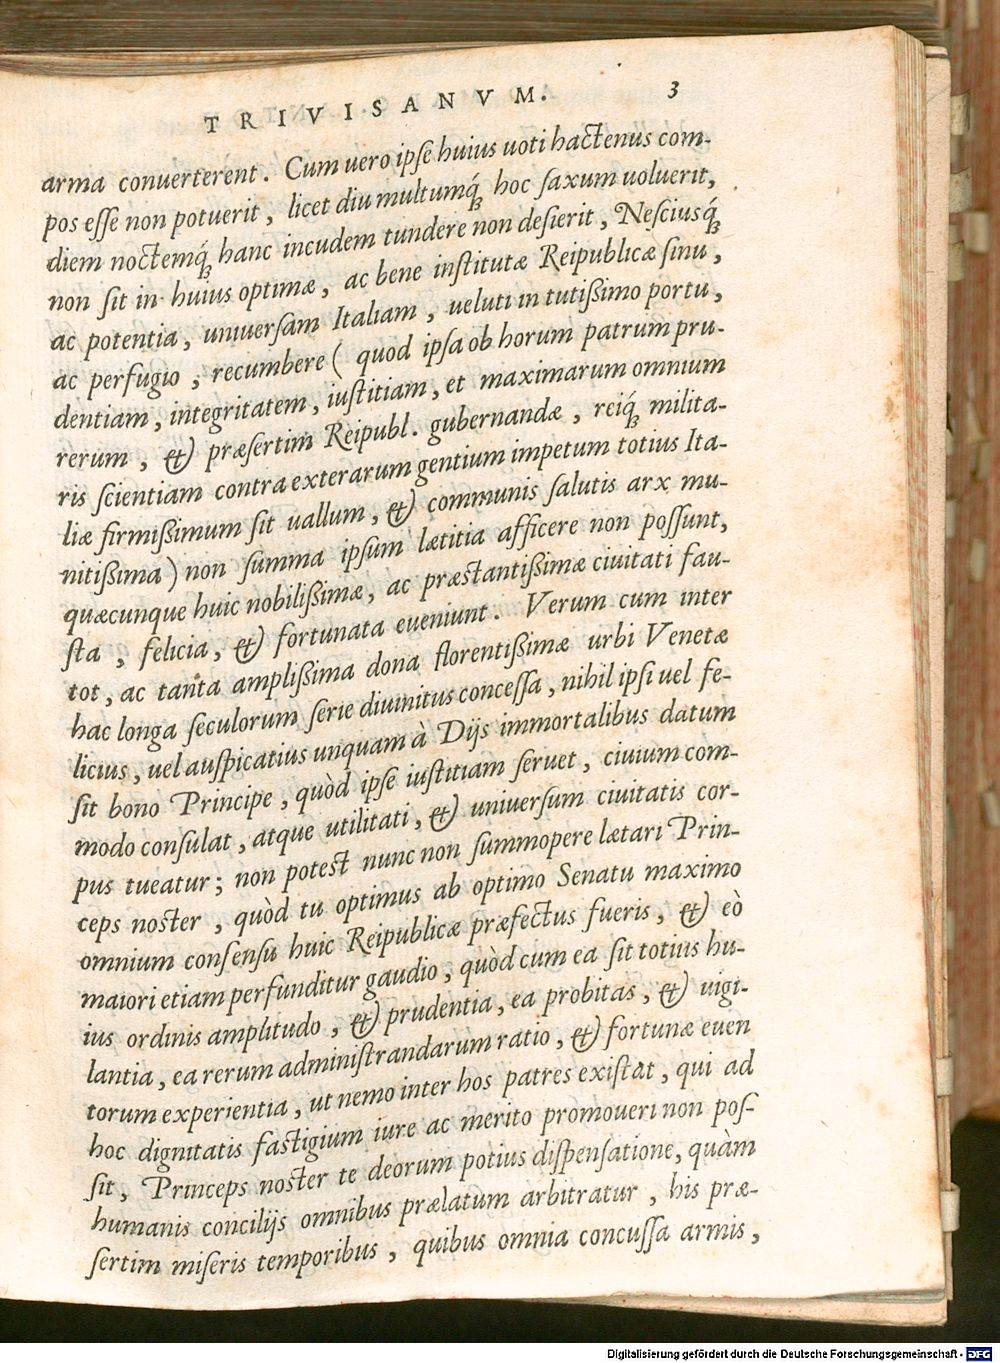 TRIVISANVM. 3
arma conuerterént. Cum uero ipſe huius uoti hactenus com-
pos eſſe non potuerit, licet diu multumq́; hoc ſaxum uoluerit,
diem noctemq́; hanc incudem tundere non deſierit, Neſciusq́;
non ſit in huius optimæ, ac bene inſtitutæ Reipublicæ ſinu,
ac potentia, uniuerſam Italiam, ueluti in tutißimo portu,
ac perfugio, recumbere (quod ipſa ob horum patrum pru-
dentiam, integritatem, iuſtitiam, et maximarum omnium
rerum, & præſertim Reipubl. gubernandæ, reiq́; milita-
ris ſcientiam contra exterarum gentium impetum totius Ita-
liæ firmißimum ſit uallum, & communis ſalutis arx mu-
nitißima) non ſumma ipſum lætitia afficere non poſſunt,
quæcunque huic nobilißimæ, ac præstantißimæ ciuitati fau-
ſta, felicia, & fortunata eueniunt. Verum cum inter
tot, ac tanta amplißima dona florentißimæ urbi Venetæ
hac longa ſeculorum ſerie diuinitus conceſſa, nihil ipſi uel fe-
licius, uel auſpicatius unquam à Dijs immortalibus datum
ſit bono Principe, quòd ipſe iuſtitiam ſeruet, ciuium com-
modo conſulat, atque utilitati, & uniuerſum ciuitatis cor-
pus tueatur; non potest nunc non ſummopere lætari Prin-
ceps noster, quòd tu optimus ab optimo Senatu maximo
omnium conſenſu huic Reipublicæ præfectus fueris, & eò
maiori etiam perfunditur gaudio, quòd cum ea ſit totius hu-
ius ordinis amplitudo, & prudentia, ea probitas, & uigi-
lantia, ea rerum adminiſtrandarum ratio, & fortunæ euen
torum experientia, ut nemo inter hos patres exiſtat, qui ad
hoc dignitatis fastigium iure ac merito promoueri non poſ-
ſit, Princeps noster te deorum potius diſpenſatione, quàm
humanis concilijs omnibus prælatum arbitratur, his præ-
ſertim miſeris temporibus, quibus omnia concuſſa armis,
Digitalisierung gefördert durch die Deutsche Forschungsgemeinschaft - DFG